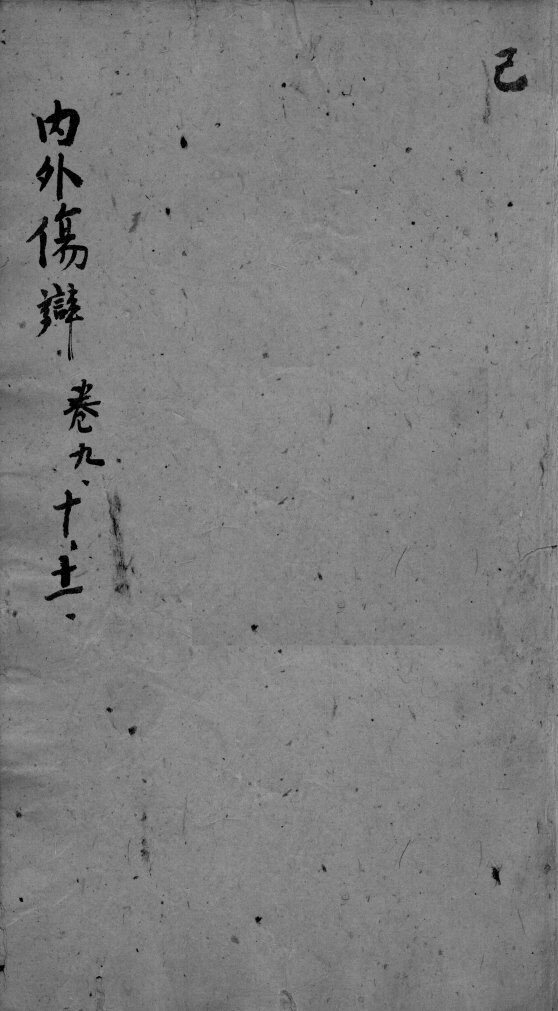 己
内外傷辯
卷九、十、十一、